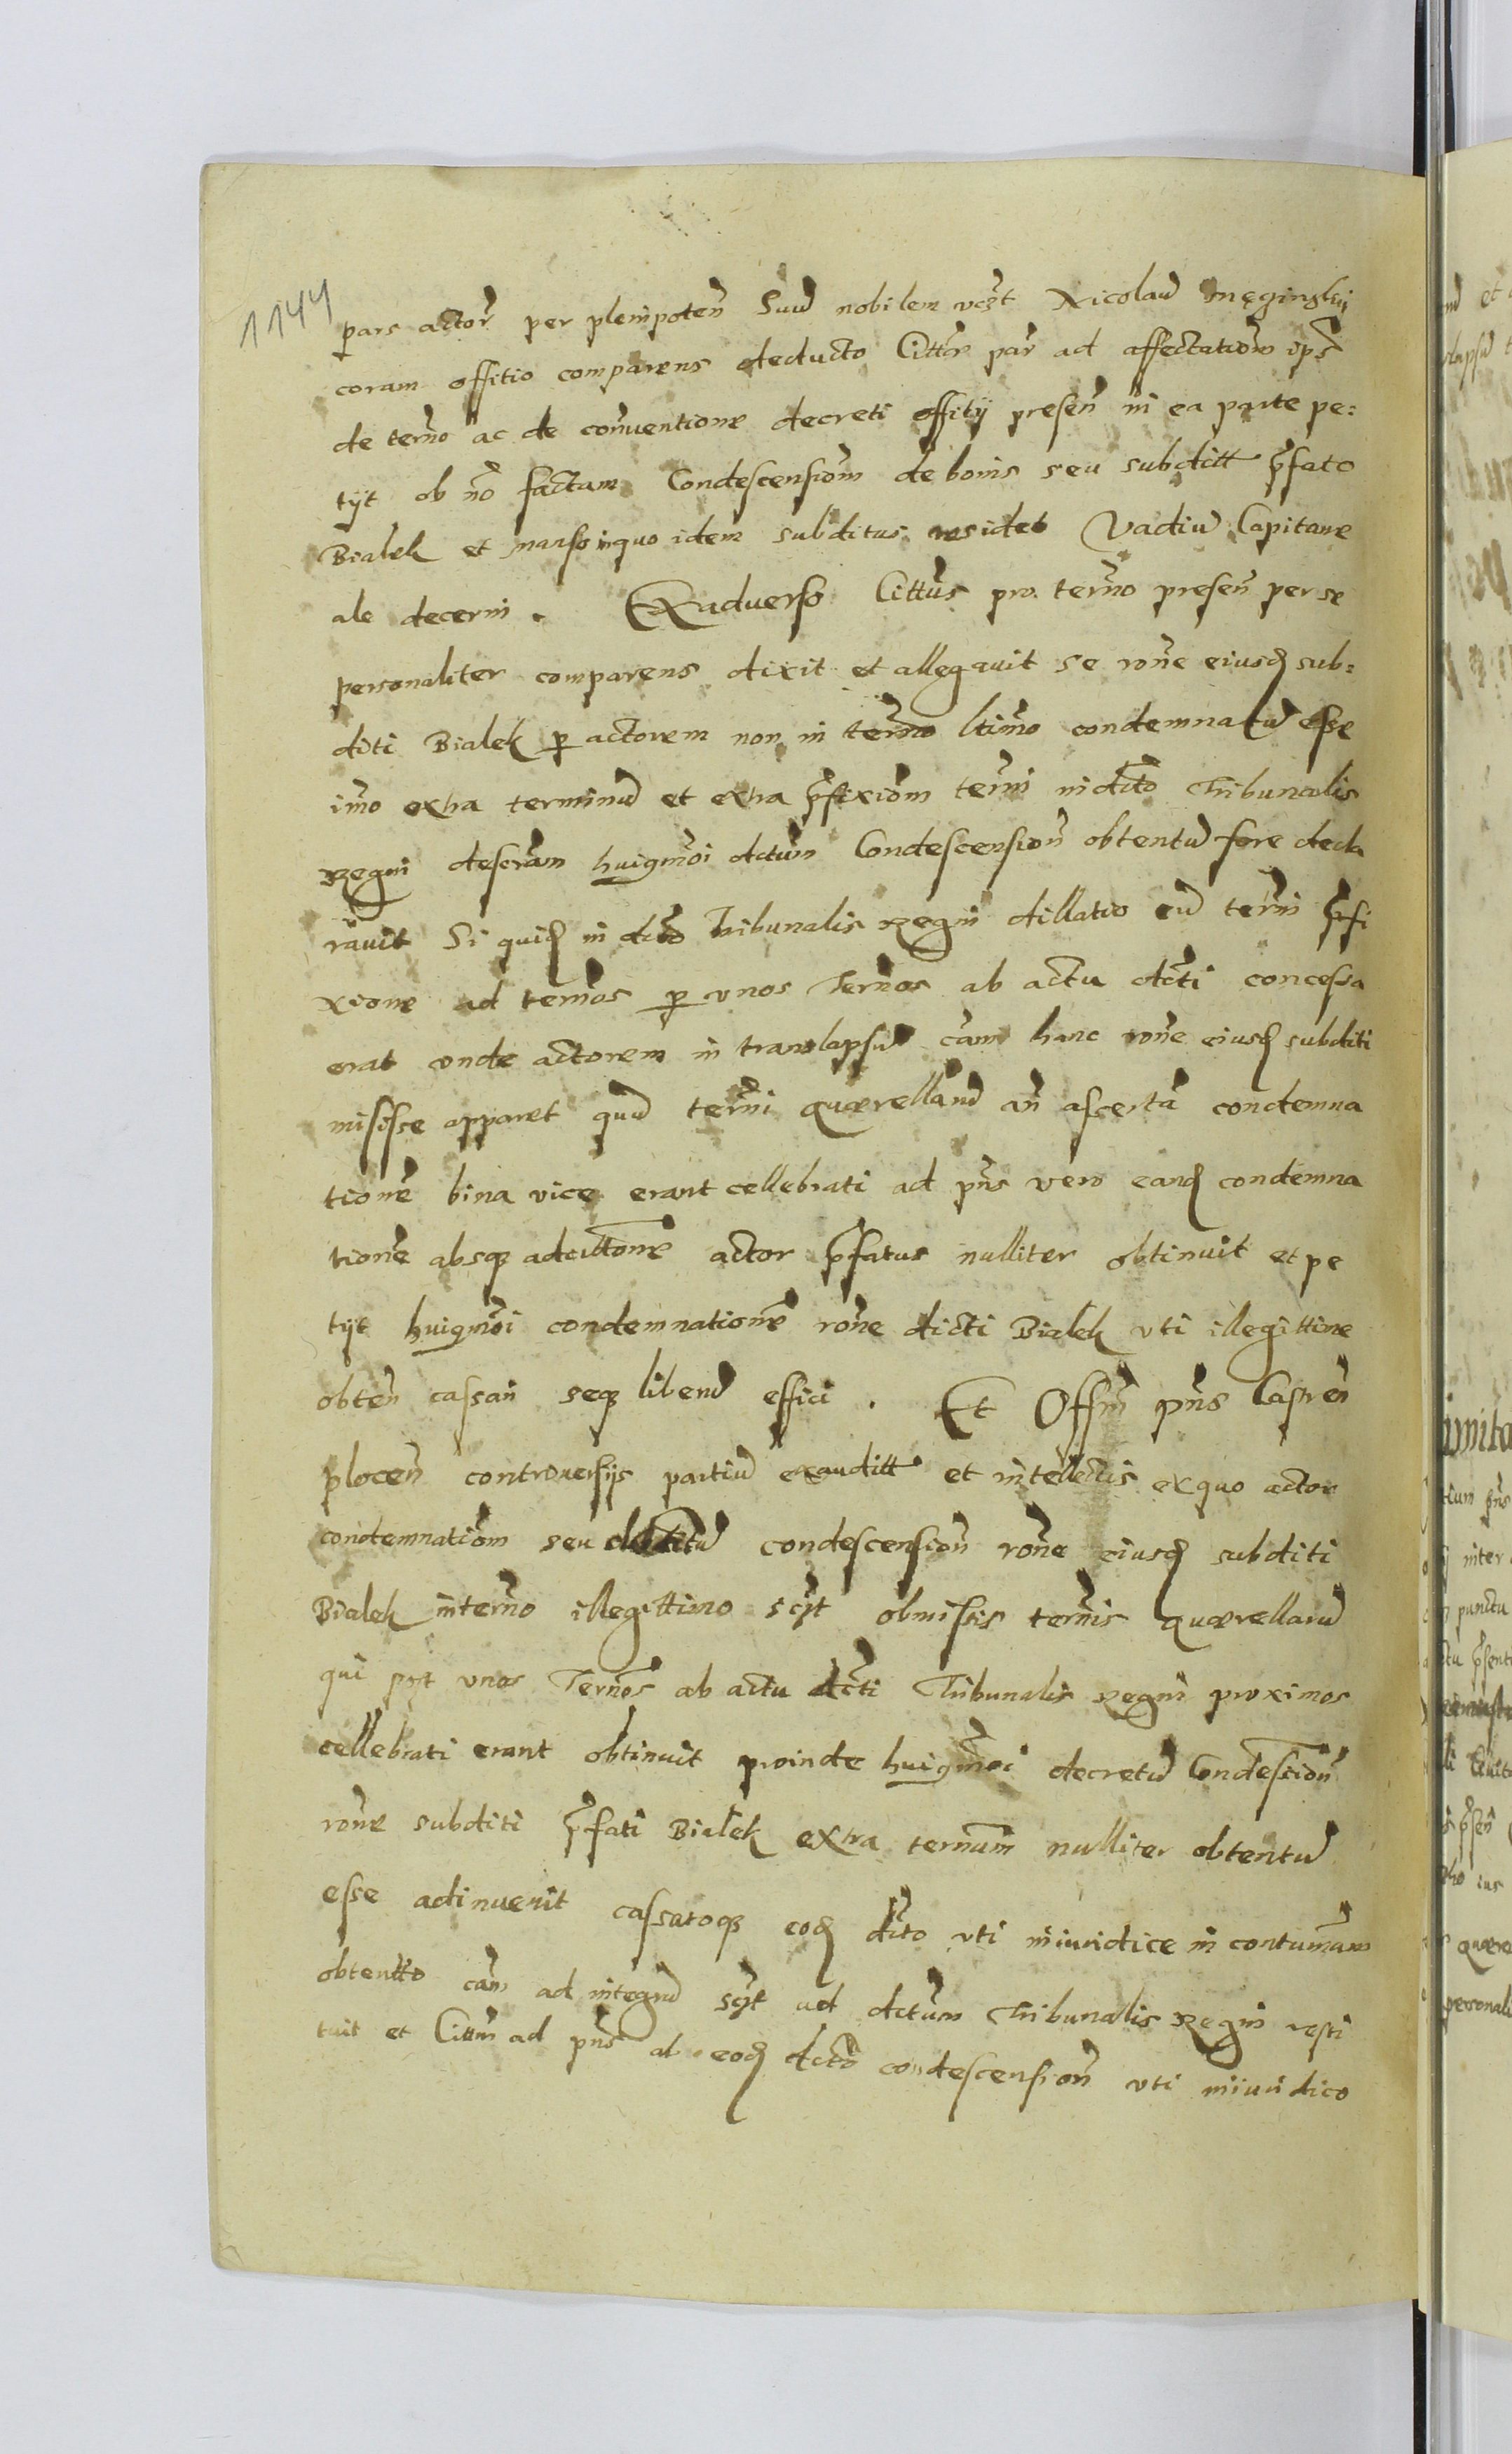 1144
pars actor per plenipoten Suu nobilem Nicolau
coram offitio comparens deducto Citto par ad affectationem ips
de termo ac de conventione decreti offitij presen in ea parte pe:
tijt ob no factam Condescensiom de bonis seu subditt pfato
Bialek et manso in quo idem subditus residet Vadiu Capitane
ale decerni. Ex adverso Cittus pro termo presen per se
personaliter comparens dixit et allegavit se rone eiusd sub:
diti Bialek p actorem non in termo ltimo condemnatu esse
imo extra terminu et extra pfixiom termi in dcto Tribunalis
Regni huigmoi dctum Condescension obtentu fore decla
ravit Si quid in dcto Tribunalis Regni dillatio cu termi pfi
xione ad termos p unos Termos ab actu dcti concessa
erat unde actorem in translapsu cam hanc rone eiusd subditi
misisse apparet quu termi querelland an condemna
tione bina vice erant cellebrati ad pns vero eand condemna
tione absq adcittone actor pfatus nulliter obtinuit et pe
tijt huigmoi condemnatione rone dicti Bialek uti illegittime
obten cassari seq liberu effici. Et Offm pns Castren
plocen controversijs partiu exauditt et intellectis ex quo actor
condemnatiom seu condescension rone eiusd subditi
Bialek in termo illegittimo scijt obmissis termis querellaru
qui pst unos Termos ab actu dcti Tribunalis Regni proximos
cellebrati erant obtinuit proinde huigmoi decretu Condescion
rone subditi pfati Bialek extra termum nulliter obtentu
esse adinvenit cassatoq eod dcto uti iniuridice in contumam
obtentto cam ad integru scijt ad dctum Tribunalis Regni resti
tuit et Cittm ad pns ab eod dcto condescension uti iniuridico